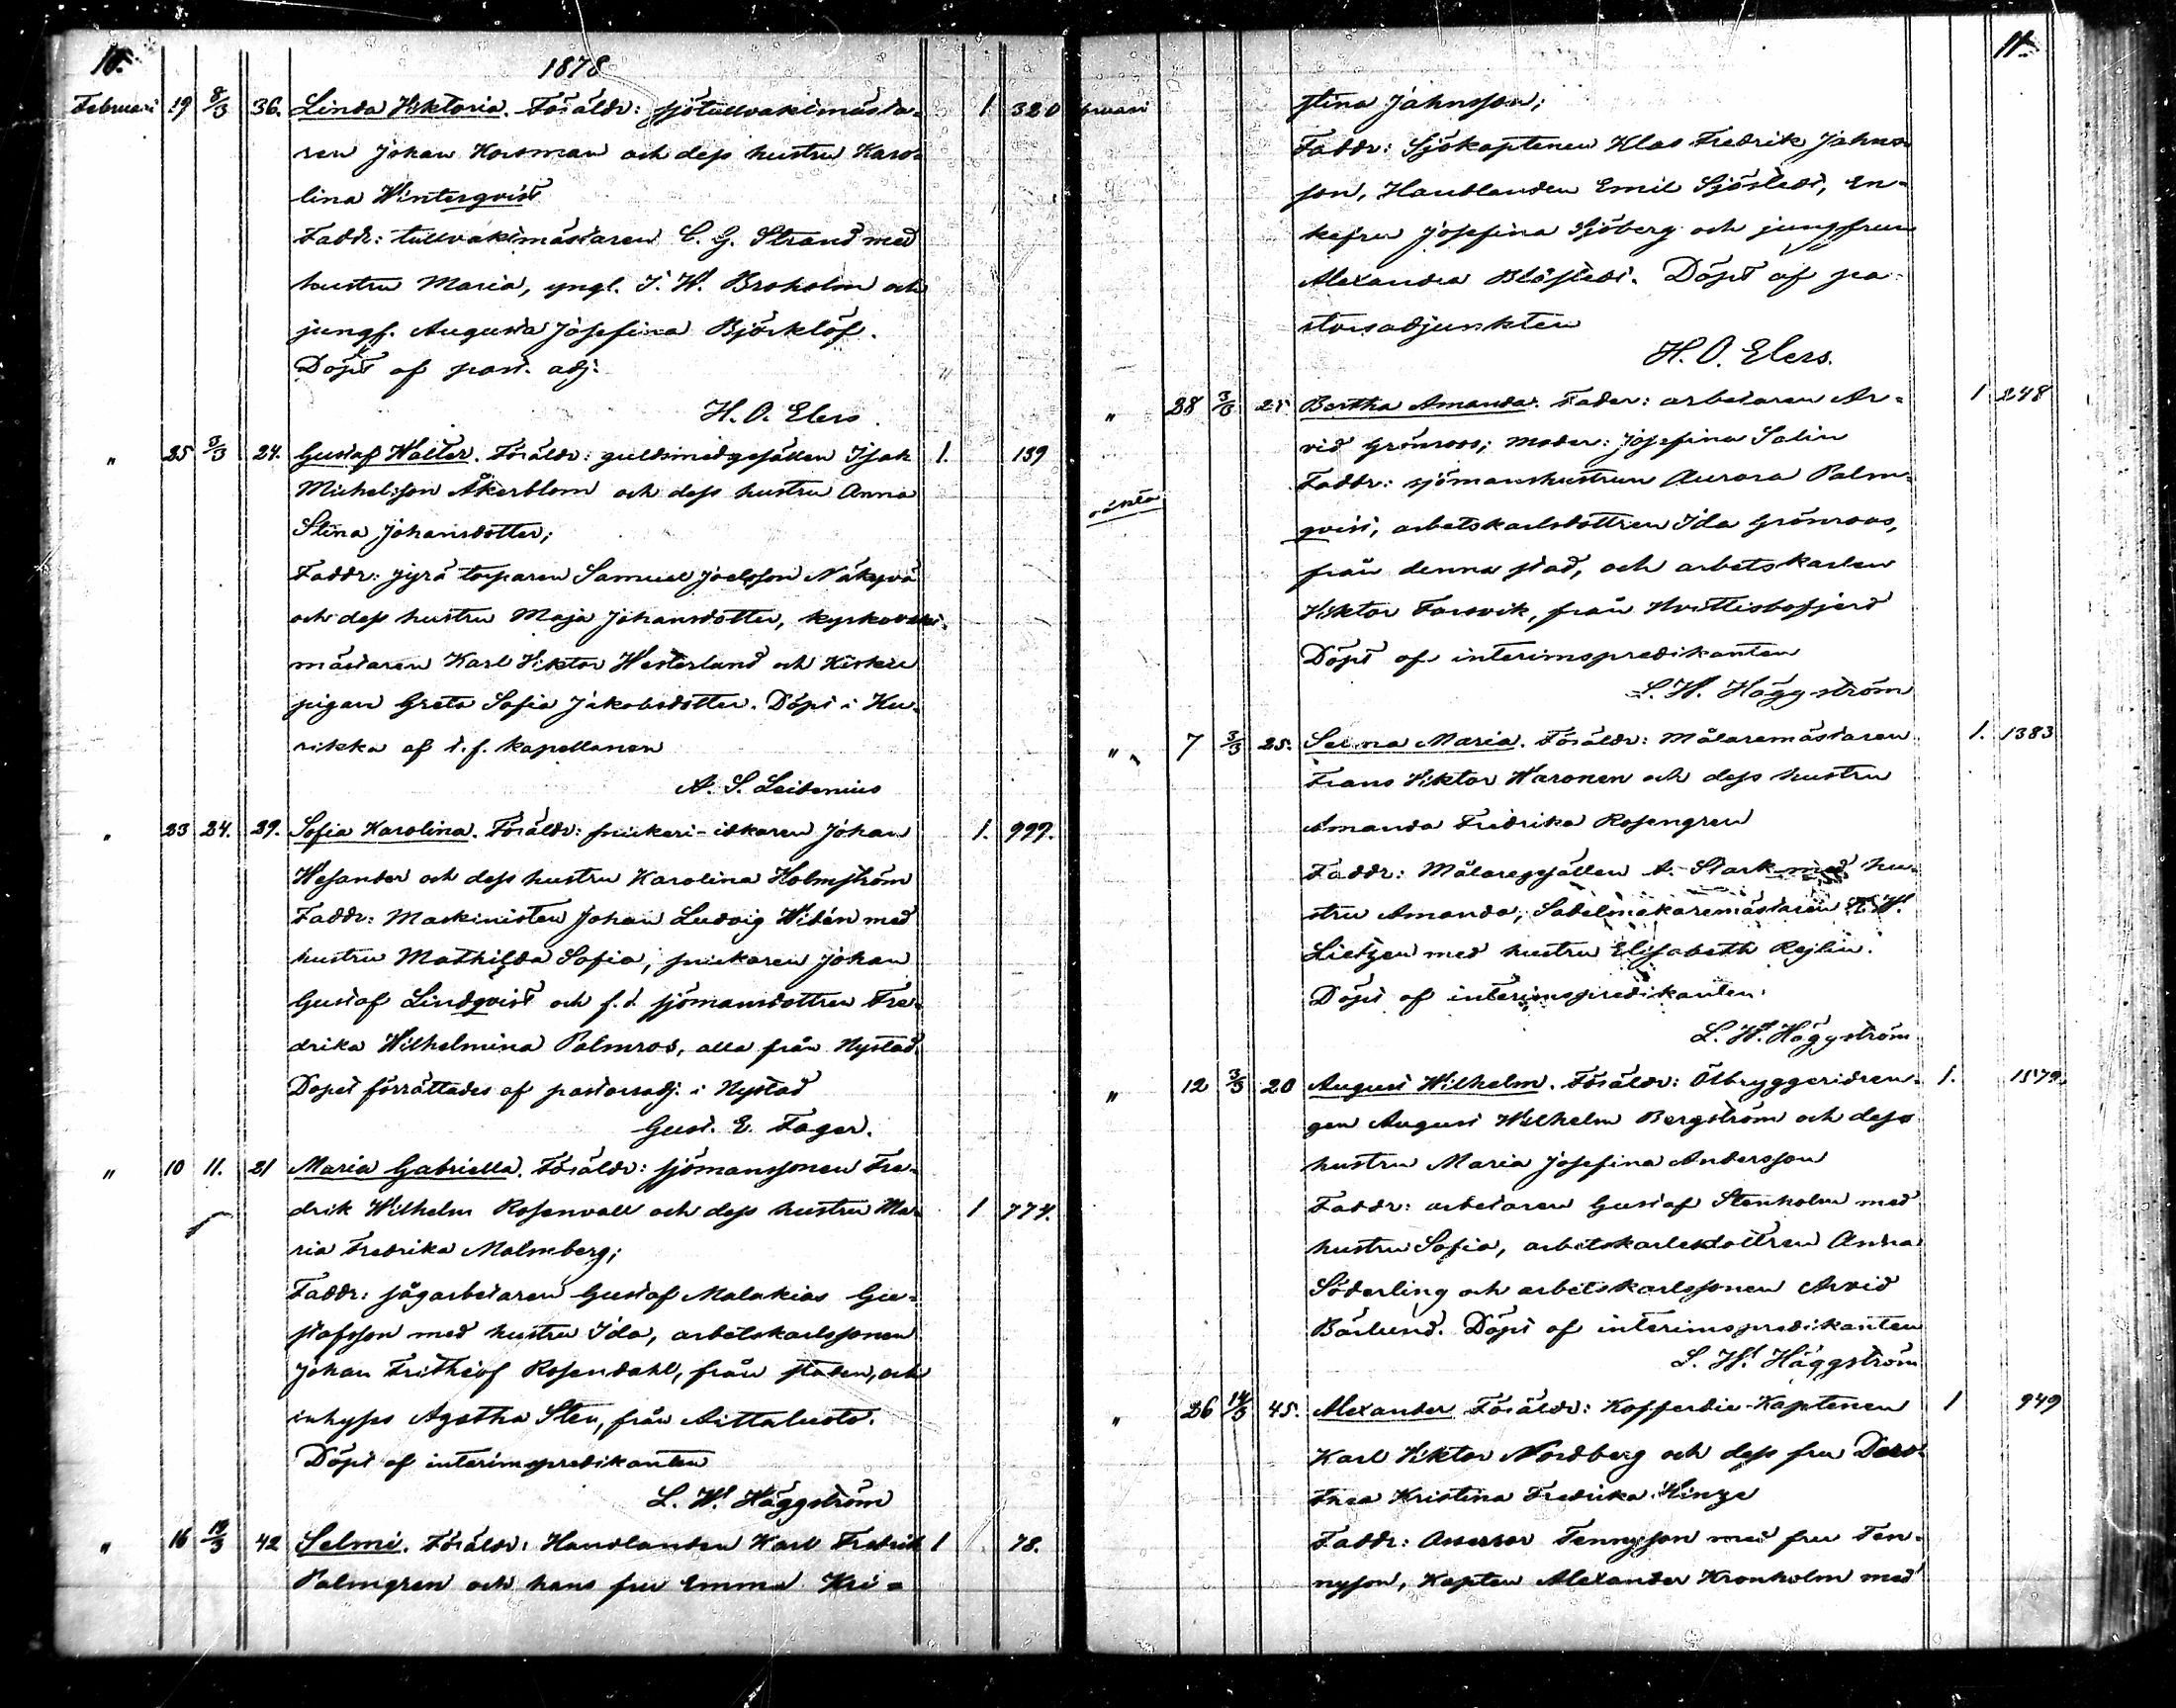 10.
1878
Februari 19 8/3 36. Linda Viktoria. Föräldr: sjötullvaktmästa- 1 320
ren Johan Korsman och dess hustru Karo-
lina Winterqvist
Faddr: tullvaktmästaren C. G. Strand med
hustru Maria, yngl. J. W. Broholm och
jungf. Augusta Josefina Björklöf.
Döpt af past. adj.
H. O. Elers.
" 25 3/3 24. Gustaf Walter. Föräldr: guldsmedgesällen Isak 1. 139
Michelsson Åkerblom och dess hustru Anna
Stina Johansdotter;
Faddr: Jyrä torparen Samuel Joelsson Näkyvä
och dess hustru Maja Johansdotter, kyrkovakt-
mästaren Karl Viktor Westerlund och
pigan Greta Sofia Jakobsdotter. Döpt i Ku-
rikka af t.f. kapellanen
A. S. Leidenius
" 23 24. 29. Sofia Karolina. Föräldr: snickeri-idkaren Johan 1. 999.
Wesander och dess hustru Karolina Holmström
Faddr: Maskinisten Johan Ludvig Widén med
hustru Mathilda Sofia, snickaren Johan
Gustaf Lindqvist och f.d. sjömansdottren Fre-
drika Wilhelmina Palmros, alla från Nystad.
Dopet förrättades af pastorsadj. i Nystad
Gust. E. Fager.
" 10 11. 21 Maria Gabriella. Föräldr: sjömanssonen Fre-
drik Wilhelm Rosenvall och dess hustru Ma- 1 774.
ria Fredrika Malmberg;
Faddr: sågarbetaren Gustaf Malakias Gu-
stafsson med hustru Ida, arbetskarlssonen
Johan Frithiof Rosendahl, från staden, och
inhyses Agatha Sten, från Aittaluoto.
Döpt af interimspredikanten
L. W. Häggström
" 16 19/3 42 Selmi. Föräldr: Handlanden Karl Fredrik 1 78.
Palmgren och hans fru Emma Kri-
11.
bruari stina Johnsson;
Faddr: Sjökaptenen Klas Fredrik Johns-
son, Handlanden Emil Sjöstedt, En-
kefru Josefina Sjöberg och jungfrun
Alexandra Blåfjeldt. Döpt af pa-
storsadjunkten
H. O. Elers.
" 28 3/3 21 Bertha Amanda. Fader: arbetaren Ar- 1 248
vid Grönroos; moder: Josefina Salin
Faddr: sjömanshustrun Aurora Palm-
qvist, arbetskarlsdottren Ida Grönroos,
från denna stad, och arbetskarlen
Viktor Forsvik, från Hvittisbofjerd
Döpt af interimspredikanten
L. W. Häggström
" 7 3/3 25. Selma Maria. Föräldr: Målaremästaren 1. 1383
Frans Viktor Waronen och dess hustru
Amanda Fredrika Rosengren
Faddr: Målaregesällen A. Stark med hu-
stru Amanda, Sadelmakaremästaren
Lietzen med hustru Elisabeth Rejlin.
Döpt af interimspredikanten
L. W. Häggström
" 12 3/3 20 August Wilhelm. Föräldr: Ölbryggeridren- 1. 1579.
gen August Wilhelm Bergström och dess
hustru Maria Josefina Andersson
Faddr: arbetaren Gustaf Stenholm med
hustru Sofia, arbetskarlsdottren Anna
Söderling och arbetskarlssonen Arvid
Bärlund. Döpt af interimspredikanten
L. W. Häggström
" 26 14/3 45. Alexander Föräldr: Kofferdie-Kaptenen 1 949
Karl Viktor Nordberg och dess fru Doro-
thea Kristina Fredrika Hinze
Faddr: Assessor Tennyson med fru Ten-
nyson, Kapten Alexander Kronholm med